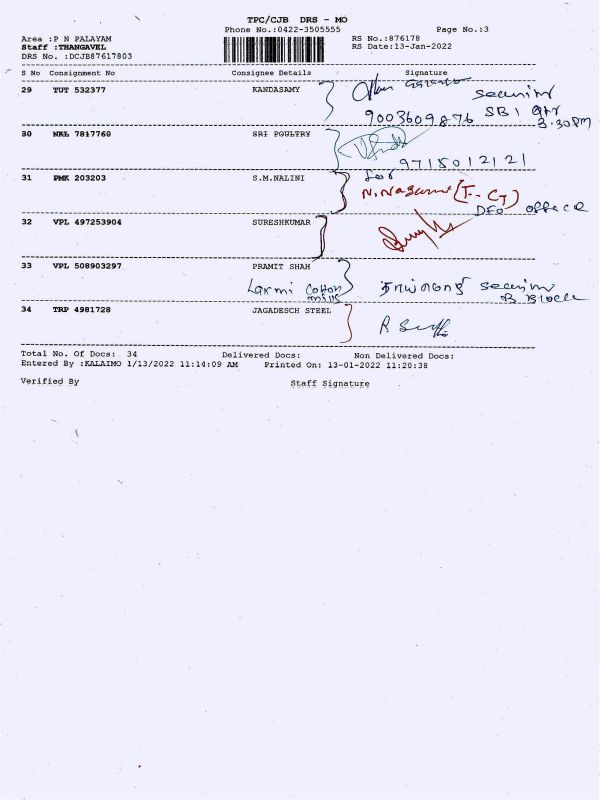 TPC/CJB DRS - MO
Phone No.:0422-3505555 Page No.:3
Area :P N PALAYAM RS No.:876178
Staff :THANGAVEL RS Date:13-Jan-2022
DRS No. :DCJB87617803
S No Consignment No Consignee Details Signature
29 TUT 532377 KANDASAMY security
9003609876 SBI Qtr
3.30pm
30 NKL 7817760 SRI POULTRY
9715012121
31 PMK 203203 S.M.NALINI for
DFO office
32 VPL 497253904 SURESHKUMAR
33 VPL 508903297 PRAMIT SHAH
Laxmi Cotton Mills security
B Block
34 TRP 4981728 JAGADESCH STEEL
Total No. Of Docs: 34 Delivered Docs: Non Delivered Docs:
Entered By :KALAIMO 1/13/2022 11:14:09 AM Printed On: 13-01-2022 11:20:38
Verified By Staff Signature